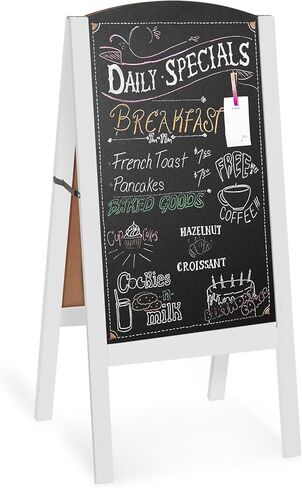 DAILY SPECIALS
BREAKFAST
French Toast $7.50
Pancakes $7.50
BAKED GOODS
FREE
COFFEE
Cup Cakes
HAZELNUT
CROISSANT
Cookies
n
milk